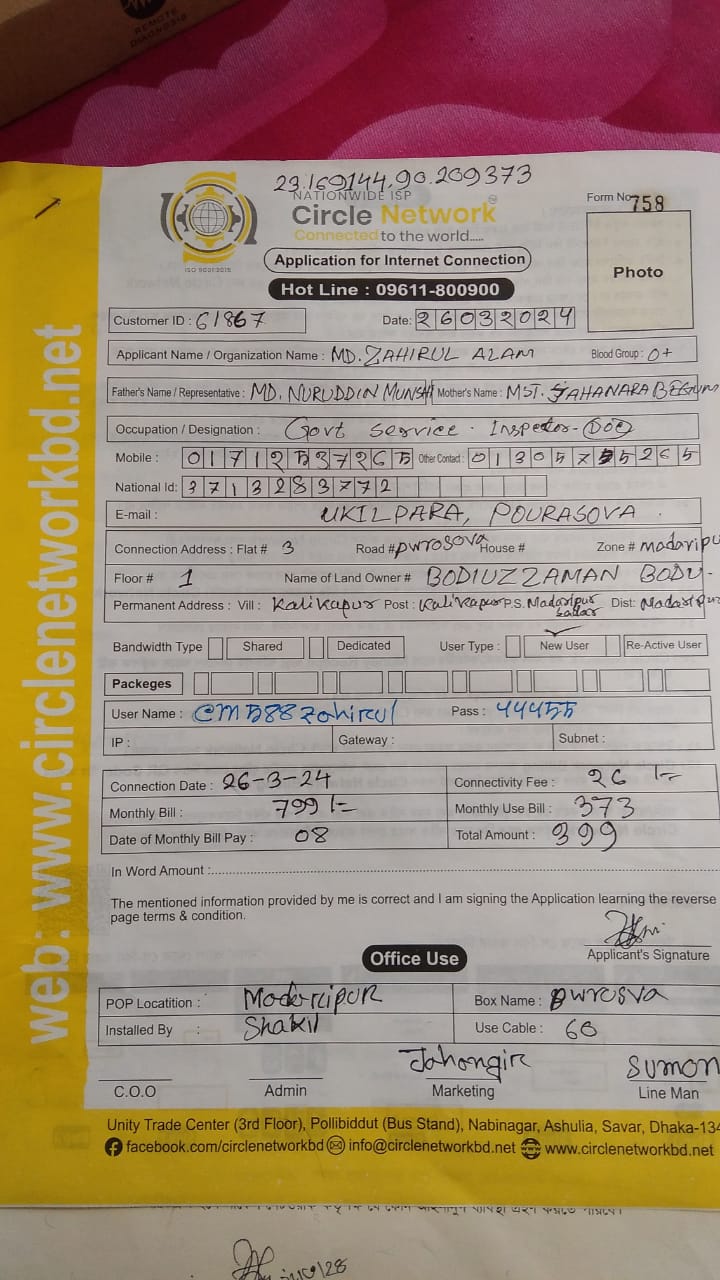 REMOTE
DIAGNOSIS
23.169144.90.209373
NATIONWIDE ISP
Form No 758
Circle Network
Connected to the world.....
ISO 9001:2015
Application for Internet Connection
Photo
Hot Line : 09611-800900
Customer ID : 61867 Date: 26032024
Applicant Name / Organization Name : MD. ZAHIRUL ALAM Blood Group : O+
Father's Name / Representative : MD. NURUDDIN MUNSHI Mother's Name : MST. JAHANARA BEGUM
Occupation / Designation : Govt Service. Inspector-
Mobile : 01712 Other Contact :
National Id: 3713283772
E-mail : UKILPARA, POURASOVA.
Connection Address : Flat # 3 Road # pwrosova House # Zone # madaripu
Floor # 1 Name of Land Owner # BODIUZZAMAN BODU.
Permanent Address : Vill : Kalikapur Post : Kalikapur P.S. Madaripur Sadar Dist: Madaripur
Bandwidth Type Shared Dedicated User Type : New User Re-Active User
Packeges
User Name : Pass :
IP : Gateway : Subnet :
Connection Date : 26-3-24 Connectivity Fee : 26 /-
Monthly Bill : 799 /- Monthly Use Bill : 373
Date of Monthly Bill Pay : 08 Total Amount : 399
In Word Amount :
The mentioned information provided by me is correct and I am signing the Application learning the reverse
page terms & condition.
Applicant's Signature
Office Use
POP Locatition : Madaripur Box Name : pwrosva
Installed By : Shakil Use Cable : 60
Jahongir Sumon
C.O.O Admin Marketing Line Man
Unity Trade Center (3rd Floor), Pollibiddut (Bus Stand), Nabinagar, Ashulia, Savar, Dhaka-134
facebook.com/circlenetworkbd info@circlenetworkbd.net www.circlenetworkbd.net
web: www.circlenetworkbd.net